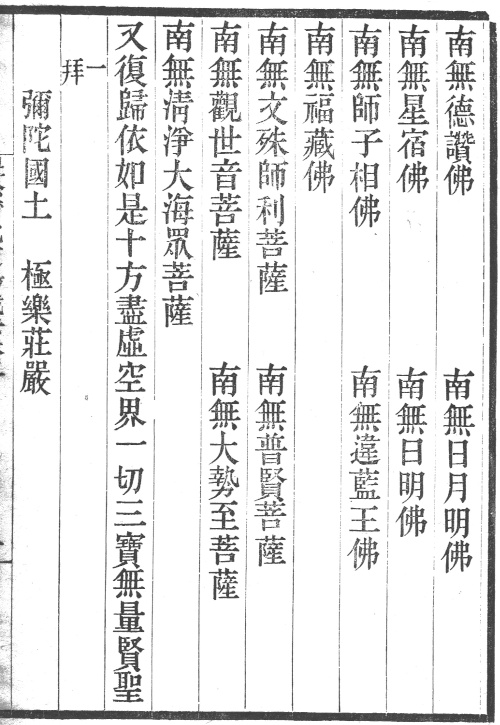 南無德讚佛　南無日月明佛
南無星宿佛　南無日明佛
南無師子相佛　南無違藍王佛
南無福藏佛
南無文殊師利菩薩　南無普賢菩薩
南無觀世音菩薩　南無大勢至菩薩
南無清淨大海眾菩薩
又復歸依如是十方盡虛空界一切三寶無量賢聖
一拜
彌陀國土　極樂莊嚴